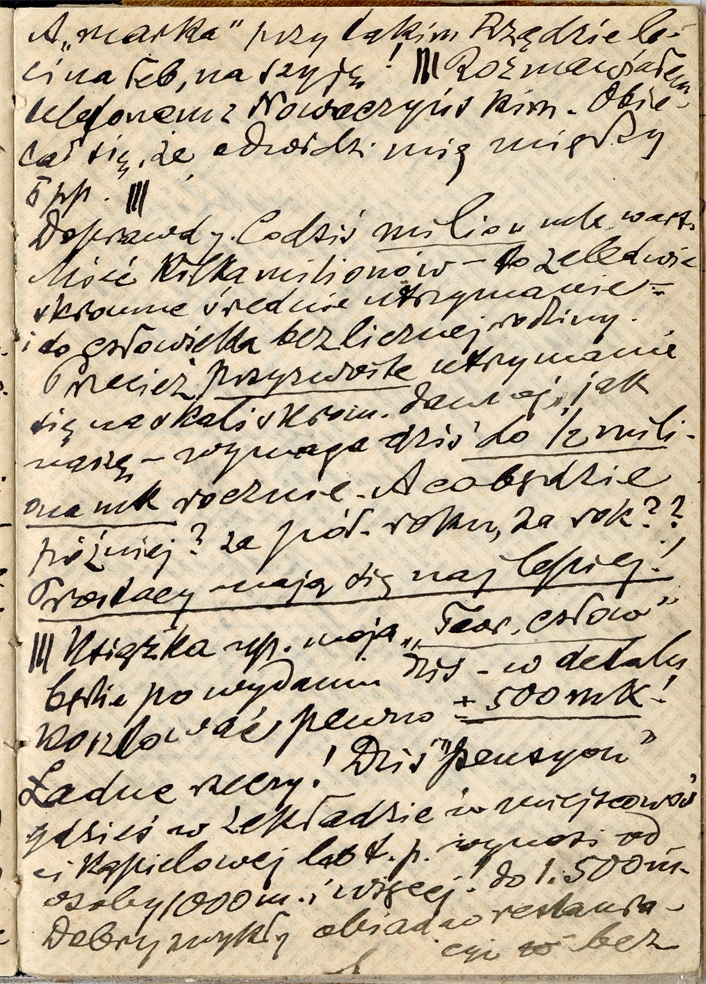 A „marka” przy takim Rządzie le-
ci na łeb, na szyję! ||| Rozmawiałem
telefonem z Nowaczyńskim. Obie-
cał się, że odwiedzi mię między
6 pp. |||
Doprawdy. Co dziś milion mk. wart.
Mieć kilka milionów – to zaledwie
skromne średnie utrzymanie –
i to człowieka bez licznej rodziny.
Przecież przyzwoite utrzymanie
się na skalę skrom. dawniej, jak
naszą – wymaga dziś do ½ mili-
ona mk rocznie. A co będzie
później? za pół-roku, za rok??
Prostacy mają się najlepiej!
||| Książka np. moja „Teor. czł
będzie po wydaniu dziś – w detalu
kosztować pewno ± 500 mk!
Ładne rzeczy! Dziś "pensyon"
gdzieś w zakładzie w miejscowoś
ci kąpielowej lub t. p. wynosi od
osoby 1000 m. i więcej! do 1.500 m.
Dobry zwykły obiad w restaura-
cyi bez